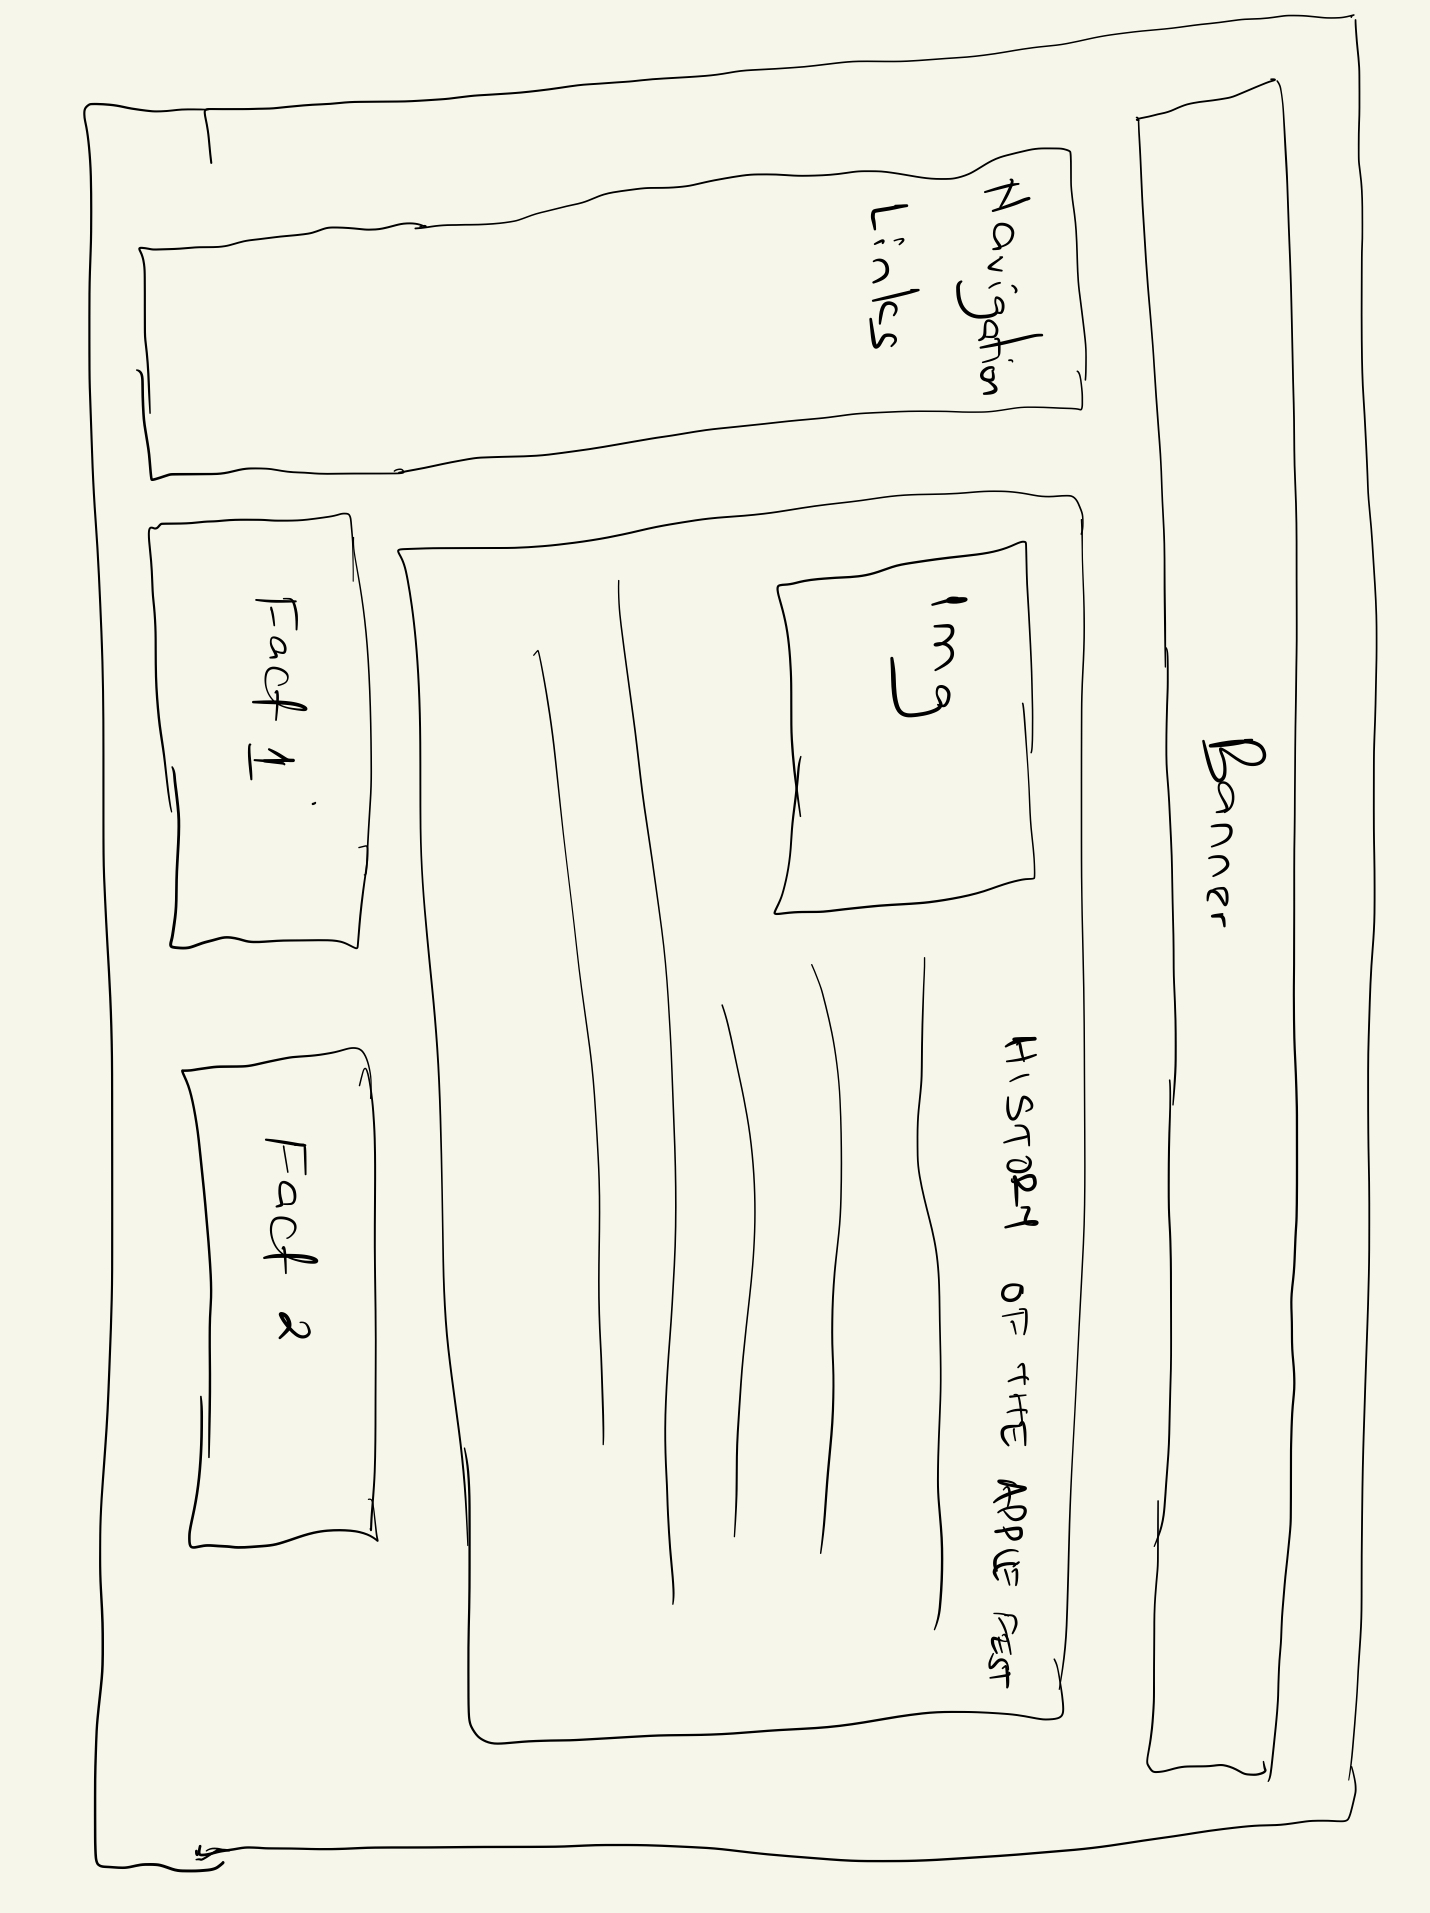 Banner
Navigation
Links
img
HISTORY OF THE APPLE FEST
Fact 1
Fact 2